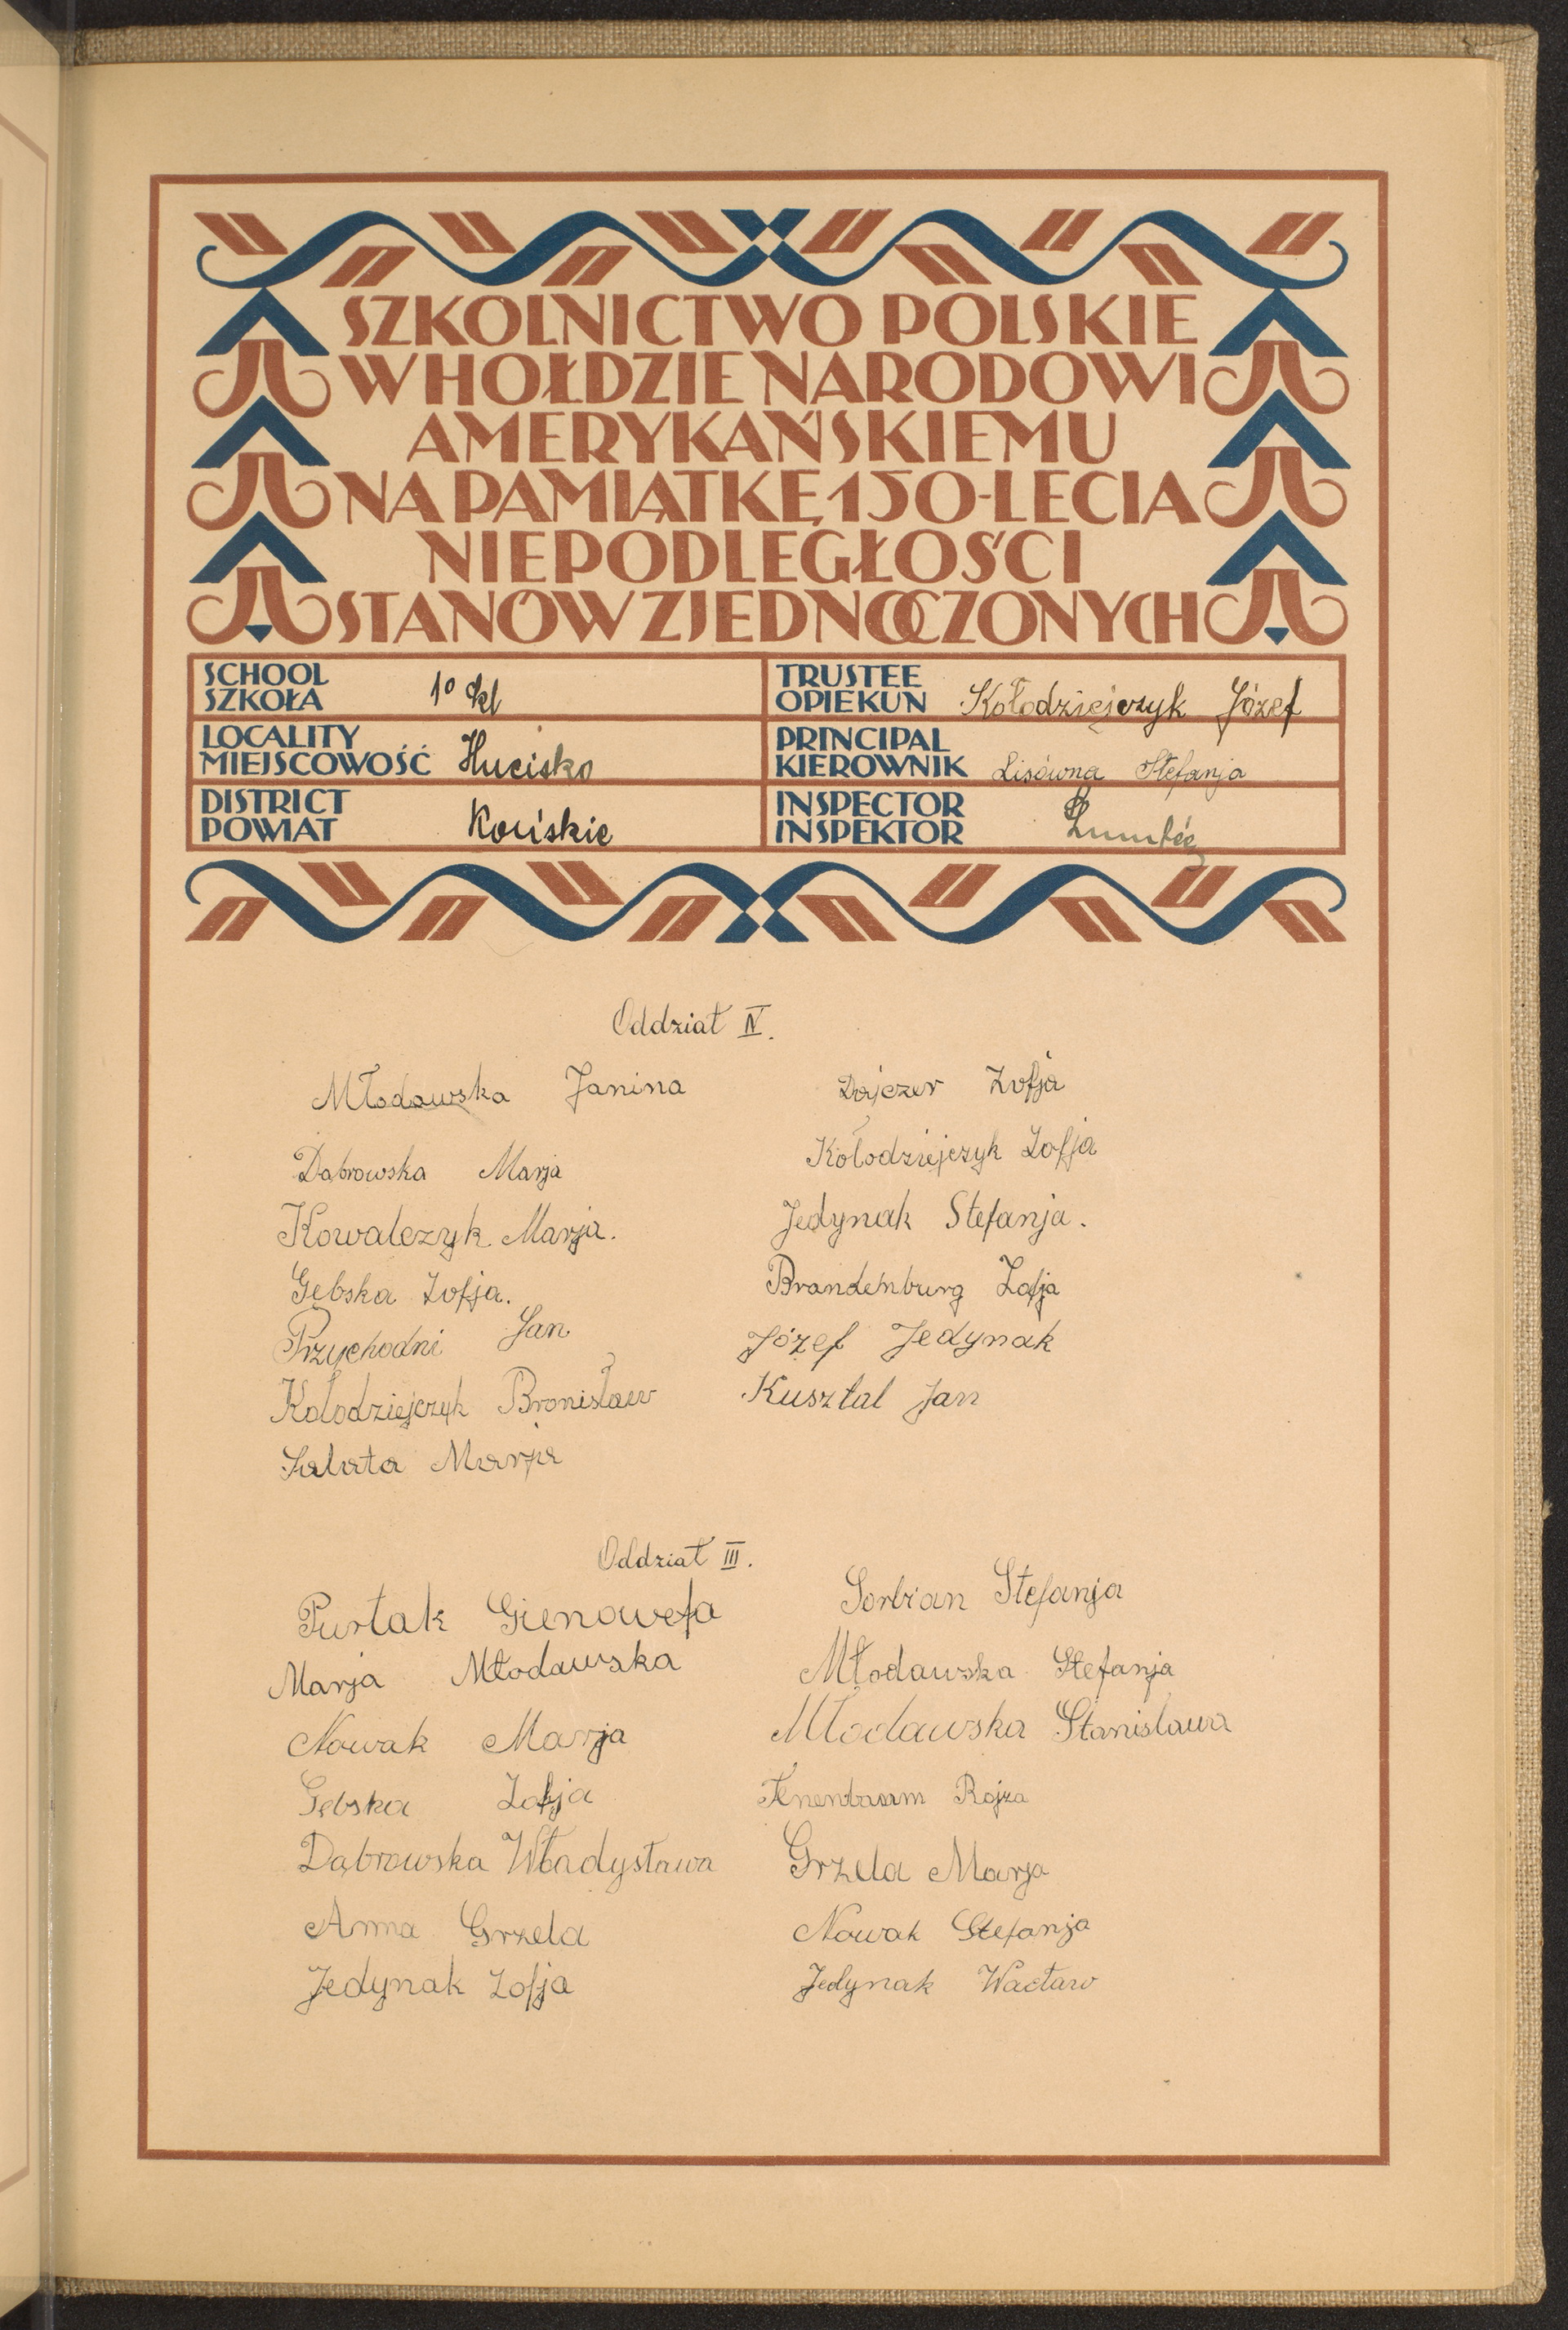 SZKOLNICTWO POLSKIE
W HOŁDZIE NARODOWI
AMERYKAŃSKIEMU
NA PAMIĄTKĘ 150-LECIA
NIEPODLEGŁOŚCI
STANÓW ZJEDNOCZONYCH
SCHOOL
SZKOŁA 1º kl
TRUSTEE
OPIEKUN Kołodziejczyk Józef
LOCALITY
MIEJSCOWOŚĆ Hucisko
PRINCIPAL
KIEROWNIK Lisówna Stefanja
DISTRICT
POWIAT Końskie
INSPECTOR
INSPEKTOR
Oddział IV.
Młodawska Janina
Dąbrowska Marja
Kowalczyk Marja.
Gębska Zofja.
Przychodni Jan
Kołodziejczyk Bronisław
Sałata Marja
Dajczer Zofja
Kołodziejczyk Zofja
Jedynak Stefanja.
Brandenburg Zofja
Józef Jedynak
Kusztal Jan
Oddział III.
Purtak Gienowefa
Marja Młodawska
Nowak Marja
Gębska Zofja
Dąbrowska Władysława
Anna Grzela
Jedynak Zofja
Sorbian Stefanja
Młodawska Stefanja
Młodawska Stanisława
Tenenbaum Rojza
Grzela Marja
Nowak Stefanja
Jedynak Wacław